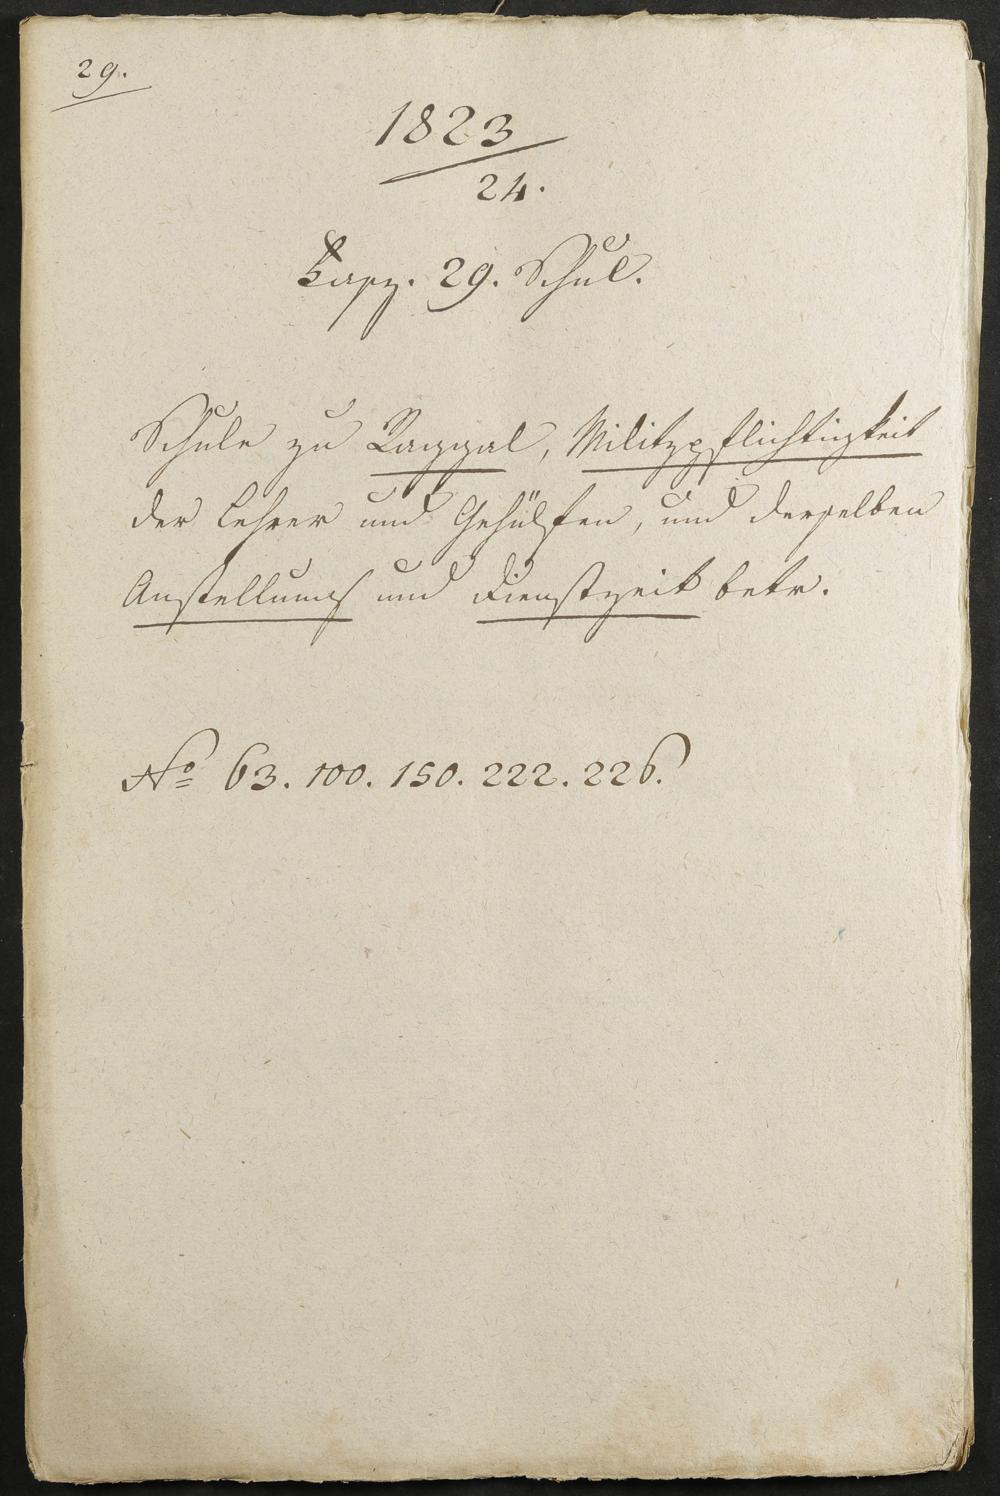 29.
1823
24.
29. Schul.
Schule zu Raggal, Militzpflichtigkeit
der Lehrer und Gehülfen, und derselben
Anstellungs und Dienstzeit betr.
No 63. 100. 150. 222. 226.